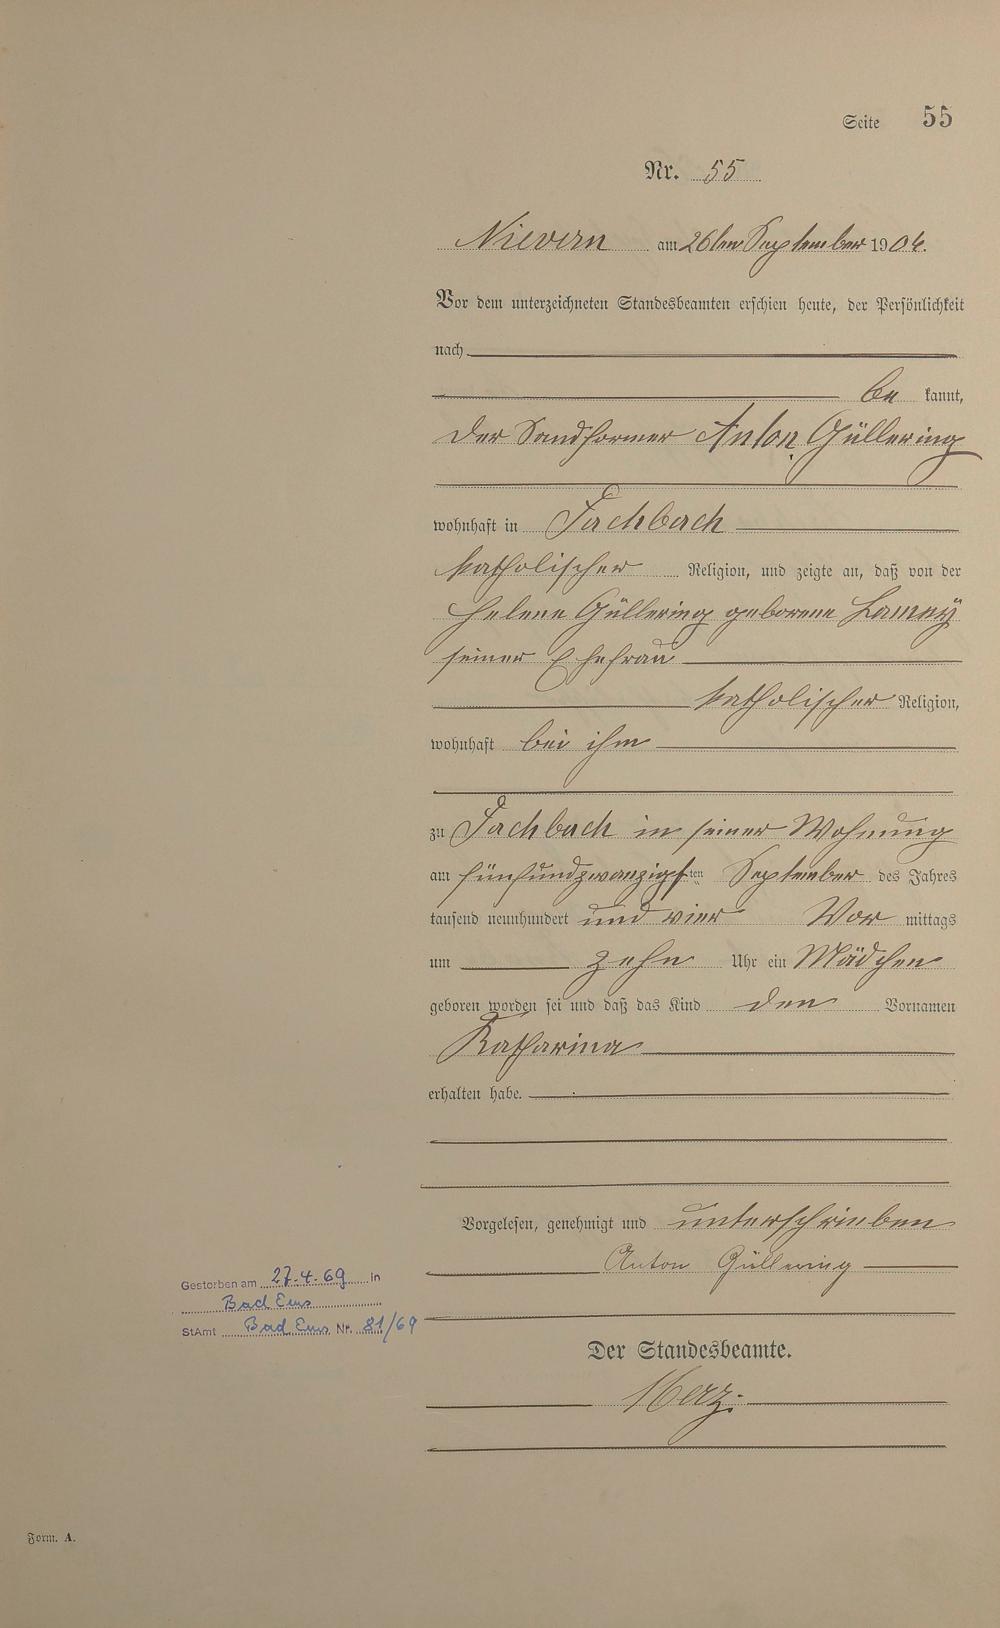 Seite 55
Nr. 55
Nievern am 26ten September 1904.
Vor dem unterzeichneten Standesbeamten erschien heute, der Persönlichkeit
nach
be kannt,
der Sandformer Anton Güllering
wohnhaft in Fachbach
katholischer Religion, und zeigte an, daß von der
Helene Güllering geborene Lamay
seiner Ehefrau
katholischer Religion,
wohnhaft bei ihm
zu Fachbach in seiner Wohnung
am fünfundzwanzigsten September des Jahres
tausend neunhundert und vier Vor mittags
um zehn Uhr ein Mädchen
geboren worden sei und daß das Kind den Vornamen
Katharina
erhalten habe.
Vorgelesen, genehmigt und unterschrieben
Anton Güllering
Gestorben am 27.4.69 in
Bad Ems
StAmt Bad Ems Nr. 81/69
Der Standesbeamte.
Form. A.